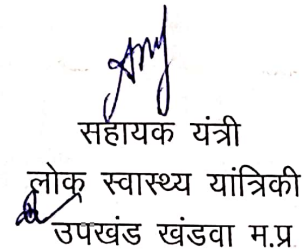 सहायक यंत्री
लोक स्वास्थ्य यांत्रिकी
उपखंड खंडवा म.प्र